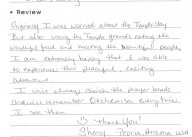 • Review
Originally I was worried about the Temple Stay
But after seeing the Temple grounds eating the
wonderful food and meeting the beautiful people,
I am extremely happy that I was able
to experience this peaceful, exciting
adventure!
I will always cherish the prayer beads
and will remember every time
I see them.
Thank You!
Sherry Peoria, Arizona